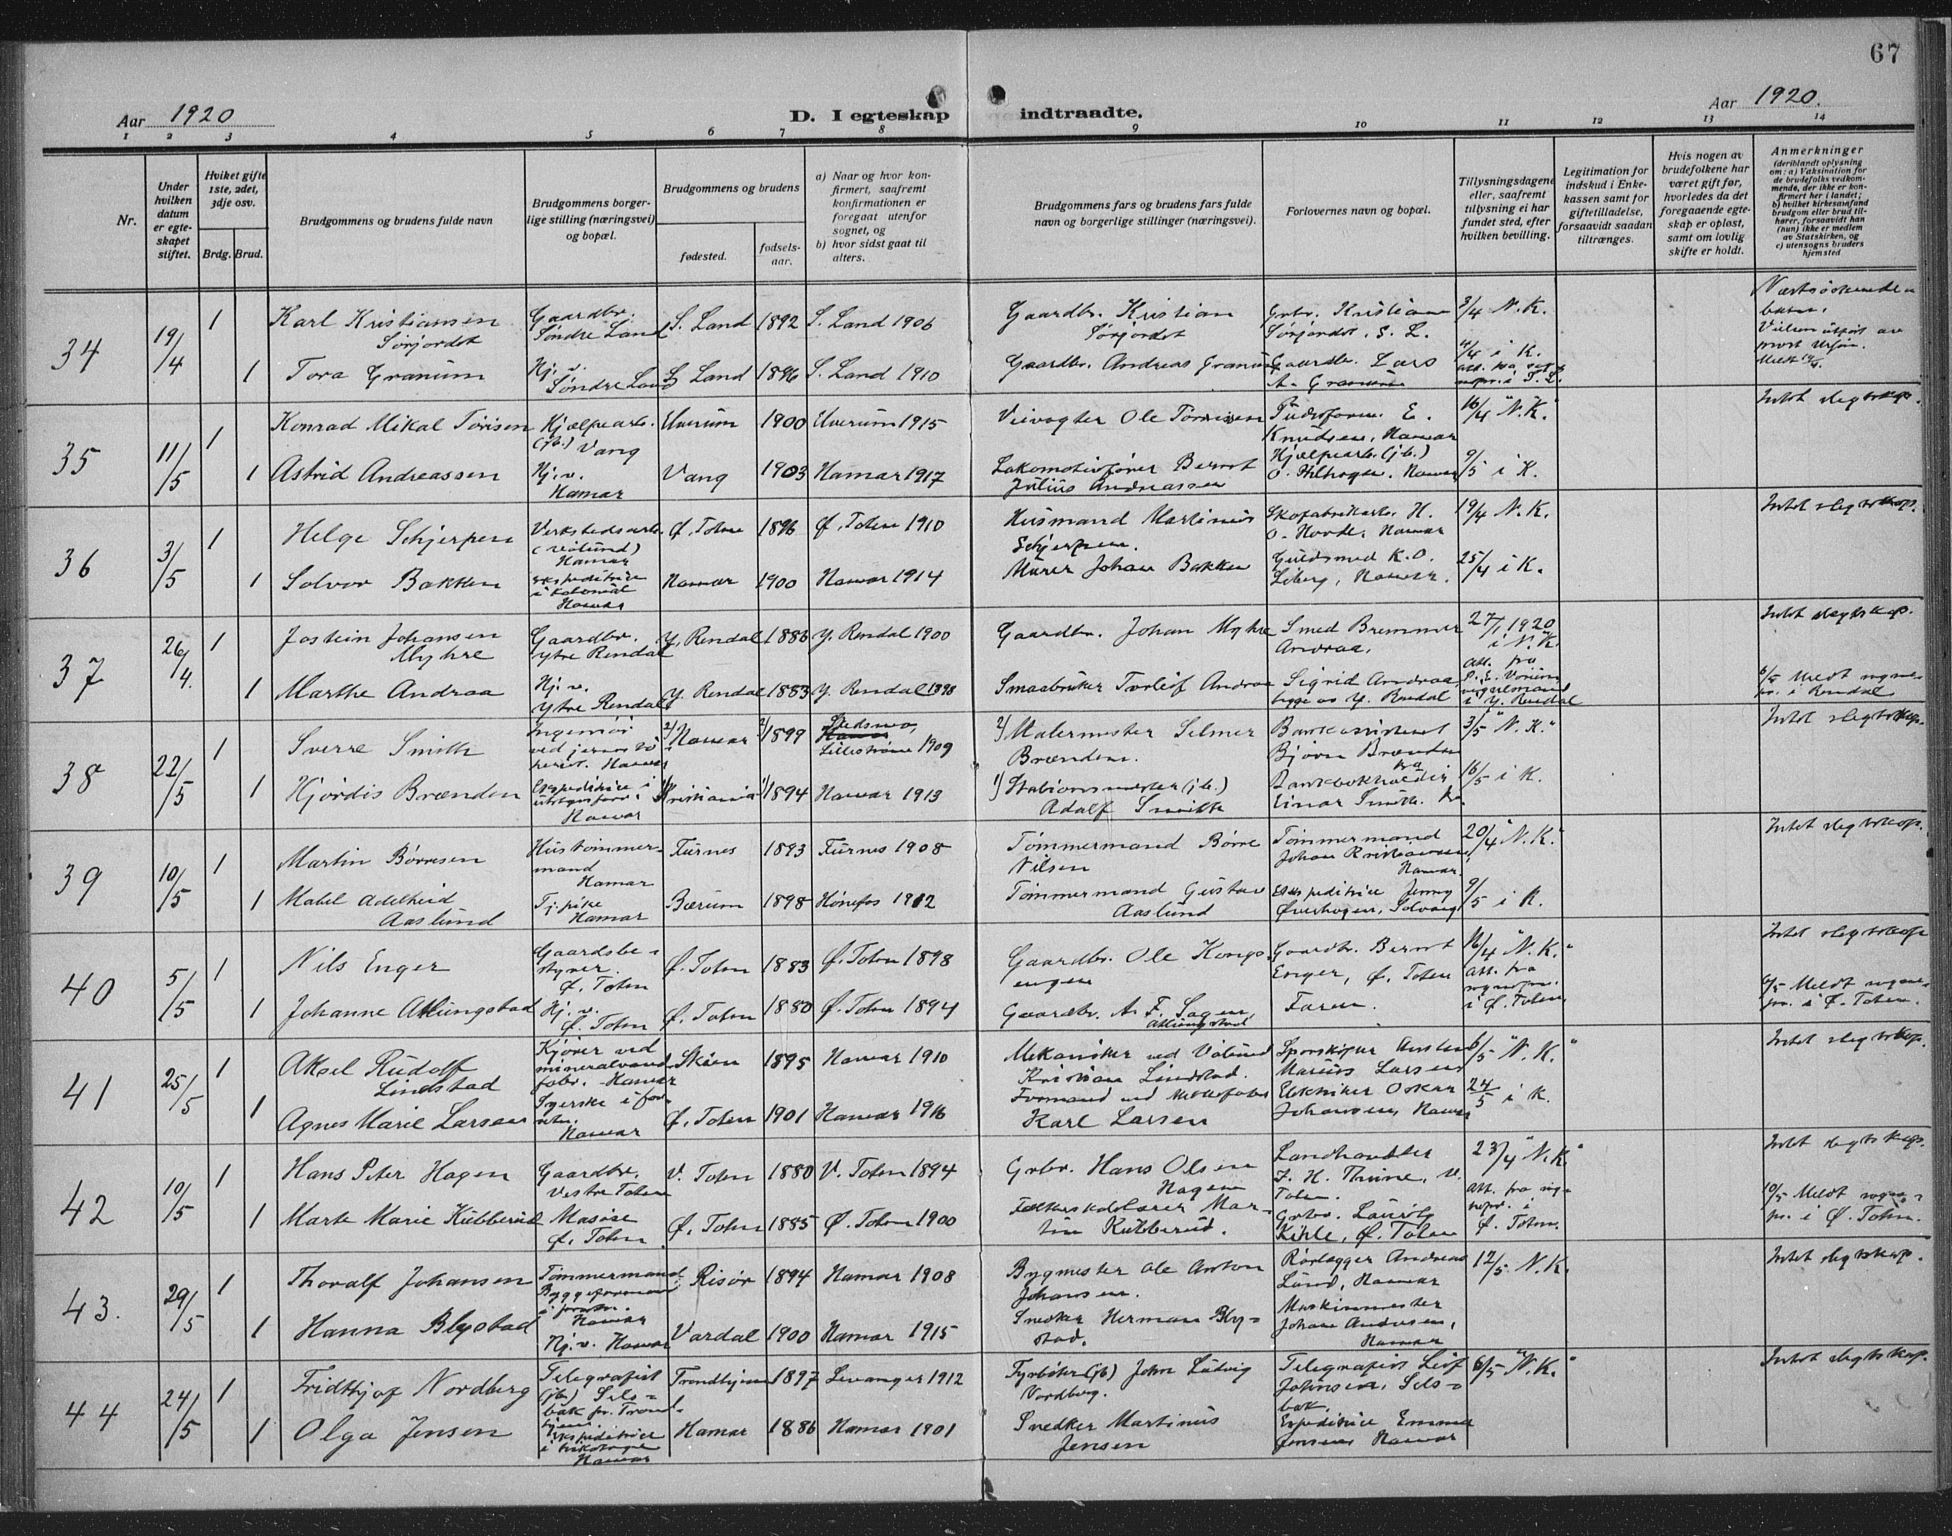 67
Aar 1920
D. I egteskap indtraadte.
Aar 1920.
1 2 3 4 5 6 7 8 9 10 11 12 13 14
Nr.
Under hvilken datum er egteskapet stiftet.
Hviket gifte 1ste, 2det, 3dje osv.
Brdg. Brud.
Brudgommens og brudens fulde navn
Brudgommens borgerlige stilling (næringsvei) og bopæl.
Brudgommens og brudens
fødested.
fødselsaar.
a) Naar og hvor konfirmert, saafremt konfirmationen er foregaat utenfor sognet, og
b) hvor sidst gaat til alters.
Brudgommens fars og brudens fars fulde navn og borgerlige stillinger (næringsvei).
Forlovernes navn og bopæl.
Tillysningsdagene eller, saafremt tillysning ei har fundet sted, efter hvilken bevilling.
Legitimation for indskud i Enkekassen samt for giftetilladelse, forsaavidt saadan tiltrænges.
Hvis nogen av brudefolkene har været gift før, hvorledes da det foregaaende egteskap er opløst, samt om lovlig skifte er holdt.
Anmerkninger
(deriblandt oplysning om: a) Vaksination for de brudefolks vedkommende, der ikke er konfirmert her i landet;
b) hvilket kirkesamfund brudgom eller brud tilhører, forsaavidt han (hun) ikke er medlem av Statskirken, og
c) utensogns bruders hjemsted
34 19/4 1 Karl Kristiansen Sørjordet Gaardbr. Søndre Land S. Land 1892 S. Land 1906 Gaardbr. Kristian Sørjordet Grbr. Kristian Sørjordet, S. L. 3/4 N. K.
1 Tora Granum Hj. v. Søndre Land S. Land 1896 S. Land 1910 Gaardbr. Andreas Granum Gaardbr. Lars A. Granum 4/4 i K.
35 11/5 1 Konrad Mikal Tørisen Hjælpearb. (jb.) Vang Elverum 1900 Elverum 1915 Veivogter Ole Tørrisen E. Knudsen, Hamar 16/4 "N. K." Intet slegtskap.
1 Astrid Andreassen Hj. v. Hamar Vang 1903 Hamar 1917 Lokomotivfører Bernt Julius Andreassen Hjælpearb. (jb.) 9/5 i K.
36 3/5 1 Helge Schjerpen Verkstedsarb. Hamar Ø. Toten 1896 Ø. Toten 1910 Husmand Martinus Schjerpen. Skofabrikarb. H. O. Hovde, Hamar 19/4 N. K. Intet slegtskap.
1 Solvor Bakken Ekspeditrice i kolonial Hamar Hamar 1900 Hamar 1914 Murer Johan Bakken Guldsmed K. O. Hamar. 25/4 i K.
37 26/4. 1 Jostein Johansen Myhre Gaardbr. Ytre Rendal Y. Rendal 1886 Y. Rendal 1900 Gaardbr. Johan Myhre Smed Bremmer Andraa. 27/1 1920 i N. K. Intet slegtskap.
1 Marthe Andraa Hj. v. Ytre Rendal Y. Rendal 1883 Y. Rendal 1898 Smaabruker Tarleif Andraa Sigrid Andraa begge av Y. Rendal att. fra i Y. Rendal 6/5 Meldt sognepr. i Rendal
38 22/5 1 Sverre Smith Ingeniør ved jernstøperiet. Hamar 2) Hamar 2) 1899 Lillestrøm 1909 2) Malermester Selmer Brænden. Bankassistent Bjørn Brænden 3/5 "N. K." Intet slegtskap.
1 Hjørdis Brænden Ekspeditrice i Hamar 1) Kristiania 1) 1894 Hamar 1913 1) Stationsmester (jb.) Adolf Smith Bankbokholder Einar Smith. Kra 16/5 i K.
39 10/5 1 Martin Børresen Hustømmermand Hamar Furnes 1893 Furnes 1908 Tømmermand Børre Nilsen Tømmermand Johan Kristiansen, Hamar. 20/4 "N. K." Intet slegtskap.
1 Mabel Adelheid Aaslund Tj. pike Hamar Bærum 1898 Hønefos 1912 Tømmermand Gustav Aaslund Ekspeditrice Jenny Øverhagen, Solvang 9/5 i K.
40 5/5 1 Nils Enger Gaardsbestyrer. Ø. Toten Ø. Toten 1883 Ø. Toten 1898 Gaardbr. Ole Kongsengen Gaardbr. Bernt Enger, Ø. Toten 16/4 "N. K." Intet slegtskap
1 Johanne Alungstad Hj. v. Ø. Toten Ø. Toten 1880 Ø. Toten 1894 Gaardbr. A. F. Sagen, Alungstad Faren. att. fra sognepr. i Ø. Toten. 6/5 Meldt sognepr. i Ø. Toten.
41 25/5 1 Aksel Rudolf Lindstad Kjører ved mineralvandfabr. Hamar Skien 1895 Hamar 1910 Mekaniker ved Vølund Kristian Lindstad. Marius Larsen 6/5 "N. K." Intet slegtskap.
1 Agnes Marie Larsen Syerske i forretn. Hamar Ø. Toten 1901 Hamar 1916 Formand ved Karl Larsen Elektriker Oskar Johansen, Hamar 24/5 i K.
42 10/5 1 Hans Peter Hagen Gaardbr. Vestre Toten V. Toten 1880 V. Toten 1894 Grbr. Hans Olsen Hagen Landhandler J. H. Thune, V. Toten. 23/4 "N. K." Intet slegtskap.
1 Marte Marie Kubberud Masøse Ø. Toten Ø. Toten 1885 Ø. Toten 1900 Folkeskolelærer Martin Kubberud. Grbr. Kihle, Ø. Toten att. fra sognepr. i Ø. Toten. 10/5 Meldt sognepr. i Ø. Toten.
43. 29/5 1 Thoralf Johansen Tømmermand Hamar Risør 1894 Hamar 1908 Bygmester Ole Anton Johansen. Rørlægger Andreas Lund, Hamar 12/5. N. K. Intet slegtskap.
1 Hanna Blystad Hj. v. Hamar Vardal 1900 Hamar 1915 Snedker Herman Blystad. Maskinmester Johan Andersen, Hamar
44 24/5 1 Fridthjof Nordberg Telegrafist (jb) Selsbak pr. Trondhjem. Trondhjem 1897 Levanger 1912 Fyrbøter (jb) John Ludvig Nordberg. Telegrafist Leif Johnsen, Selsbak. 6/5 "N. K." Intet slegtskap.
1 Olga Jensen Ekspeditrice i Hamar Hamar 1886 Hamar 1901 Snedker Martinus Jensen Expeditrice Emma Jensen Hamar